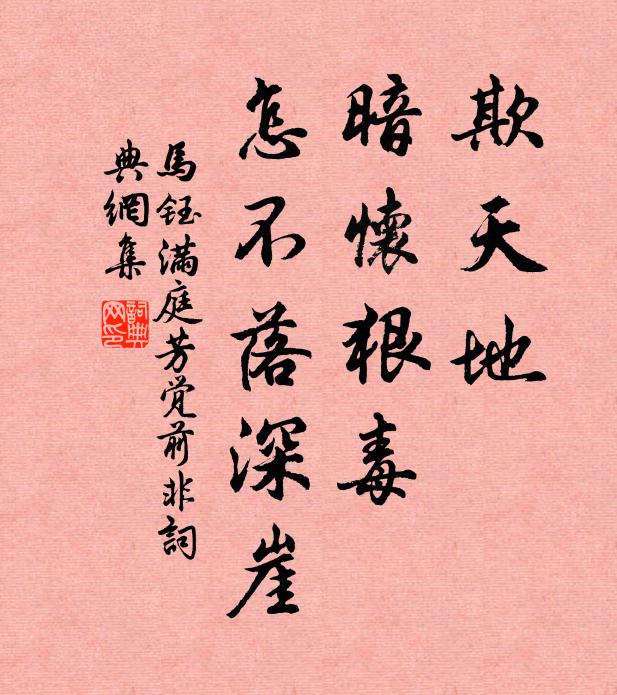 欺天地
暗懷狠毒
怎不落深崖
馬鈺滿庭芳觉前非詞
典網集
詞典
网印